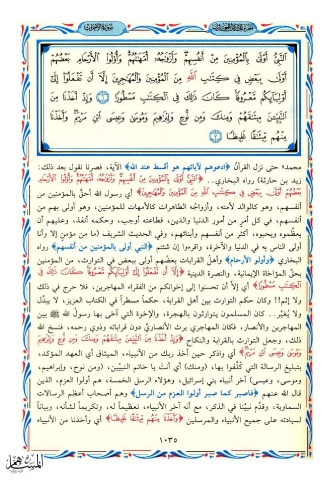 النَّبِيُّ أَوْلَىٰ بِالْمُؤْمِنِينَ مِنْ أَنفُسِهِمْ وَأَزْوَاجُهُ أُمَّهَاتُهُمْ وَأُوْلُوا الْأَرْحَامِ بَعْضُهُمْ
أَوْلَىٰ بِبَعْضٍ فِي كِتَابِ اللَّهِ مِنَ الْمُؤْمِنِينَ وَالْمُهَاجِرِينَ إِلَّا أَن تَفْعَلُوا إِلَىٰ
أَوْلِيَائِكُم مَّعْرُوفًا كَانَ ذَٰلِكَ فِي الْكِتَابِ مَسْطُورًا ٦ وَإِذْ أَخَذْنَا مِنَ
النَّبِيِّينَ مِيثَاقَهُمْ وَمِنكَ وَمِن نُّوحٍ وَإِبْرَاهِيمَ وَمُوسَىٰ وَعِيسَى ابْنِ مَرْيَمَ وَأَخَذْنَا
مِنْهُم مِّيثَاقًا غَلِيظًا ٧
محمد؟ حتى نزل القرآن ﴿ادعوهم لآبائهم هو أقسط عند الله﴾ الآية، فصرنا نقول بعد ذلك:
زيد بن حارثة) رواه البخاري.. ﴿النَّبِيُّ أَوْلَىٰ بِالْمُؤْمِنِينَ مِنْ أَنفُسِهِمْ وَأَزْوَاجُهُ أُمَّهَاتُهُمْ وَأُوْلُوا الْأَرْحَامِ
بَعْضُهُمْ أَوْلَىٰ بِبَعْضٍ فِي كِتَابِ اللَّهِ مِنَ الْمُؤْمِنِينَ وَالْمُهَاجِرِينَ﴾ أي رسول الله أحقُّ بالمؤمنين من
أنفسهم، وهو كالوالد لأمته، وأزواجُه الطاهرات كالأمهات للمؤمنين، وهو أولى بهم من
أنفسهم، في كل أمر من أمور الدنيا والدين، فطاعته أوجب، وحكمه أنفذ، وعليهم أن
يعظّموه ويحبوه، أكثر من أنفسهم وأبنائهم، وفي الحديث الشريف (ما من مؤمن إلا وأنا
أولى الناس به في الدنيا والآخرة، واقرءوا إن شئتم ﴿النبي أولى بالمؤمنين من أنفسهم﴾ رواه
البخاري ﴿وأولو الأرحام﴾ وأهل القرابات بعضهم أولى ببعض في التوارث، من المؤمنين
بحقّ المؤاخاة الإيمانية، والنصرة الدينية ﴿إِلَّا أَن تَفْعَلُوا إِلَىٰ أَوْلِيَائِكُم مَّعْرُوفًا كَانَ ذَٰلِكَ فِي
الْكِتَابِ مَسْطُورًا﴾ أي إلاّ أن تحسنوا إلى إخوانكم من الفقراء المهاجرين، فلا حرج في ذلك
ولا إثم!! وكان حكم التوارث بين أهل القرابة، حكماً مسطراً في الكتاب العزيز، لا يبدّل
ولا يُغيّر.. كان المسلمون يتوارثون بالهجرة، والإخوة التي آخى بها رسول الله ﷺ بين
المهاجرين والأنصار، فكان المهاجري يرث الأنصاريَّ دون قراباته وذوي رحمه، فنسخ الله
ذلك، وجعل التوارث بالقرابة والنكاح ﴿وَإِذْ أَخَذْنَا مِنَ النَّبِيِّينَ مِيثَاقَهُمْ وَمِنكَ وَمِن نُّوحٍ وَإِبْرَاهِيمَ
وَمُوسَىٰ وَعِيسَى ابْنِ مَرْيَمَ﴾ أي واذكر حين أخذ ربك من الأنبياء، الميثاق أي العهد المؤكد،
بتبليغ الرسالة التي كُلّفوا بها، (ومنك) أي أنت يا خاتم النبيّين، (ومن نوح، وإبراهيم،
وموسى، وعيسى) آخر أنبياء بني إسرائيل، وهؤلاء الرسل الخمسة، هم أولوا العزم، الذين
قال الله عنهم ﴿فاصبر كما صبر أولوا العزم من الرسل﴾ وهم أصحاب أعظم الرسالات
السماوية، وقدّم نبيّنا في الذكر، مع أنه آخر الأنبياء، تعظيماً له، وتكريماً لشأنه، وبياناً
لسيادته على جميع الأنبياء والمرسلين ﴿وَأَخَذْنَا مِنْهُم مِّيثَاقًا غَلِيظًا﴾ أي وأخذنا من الأنبياء
١٠٣٥